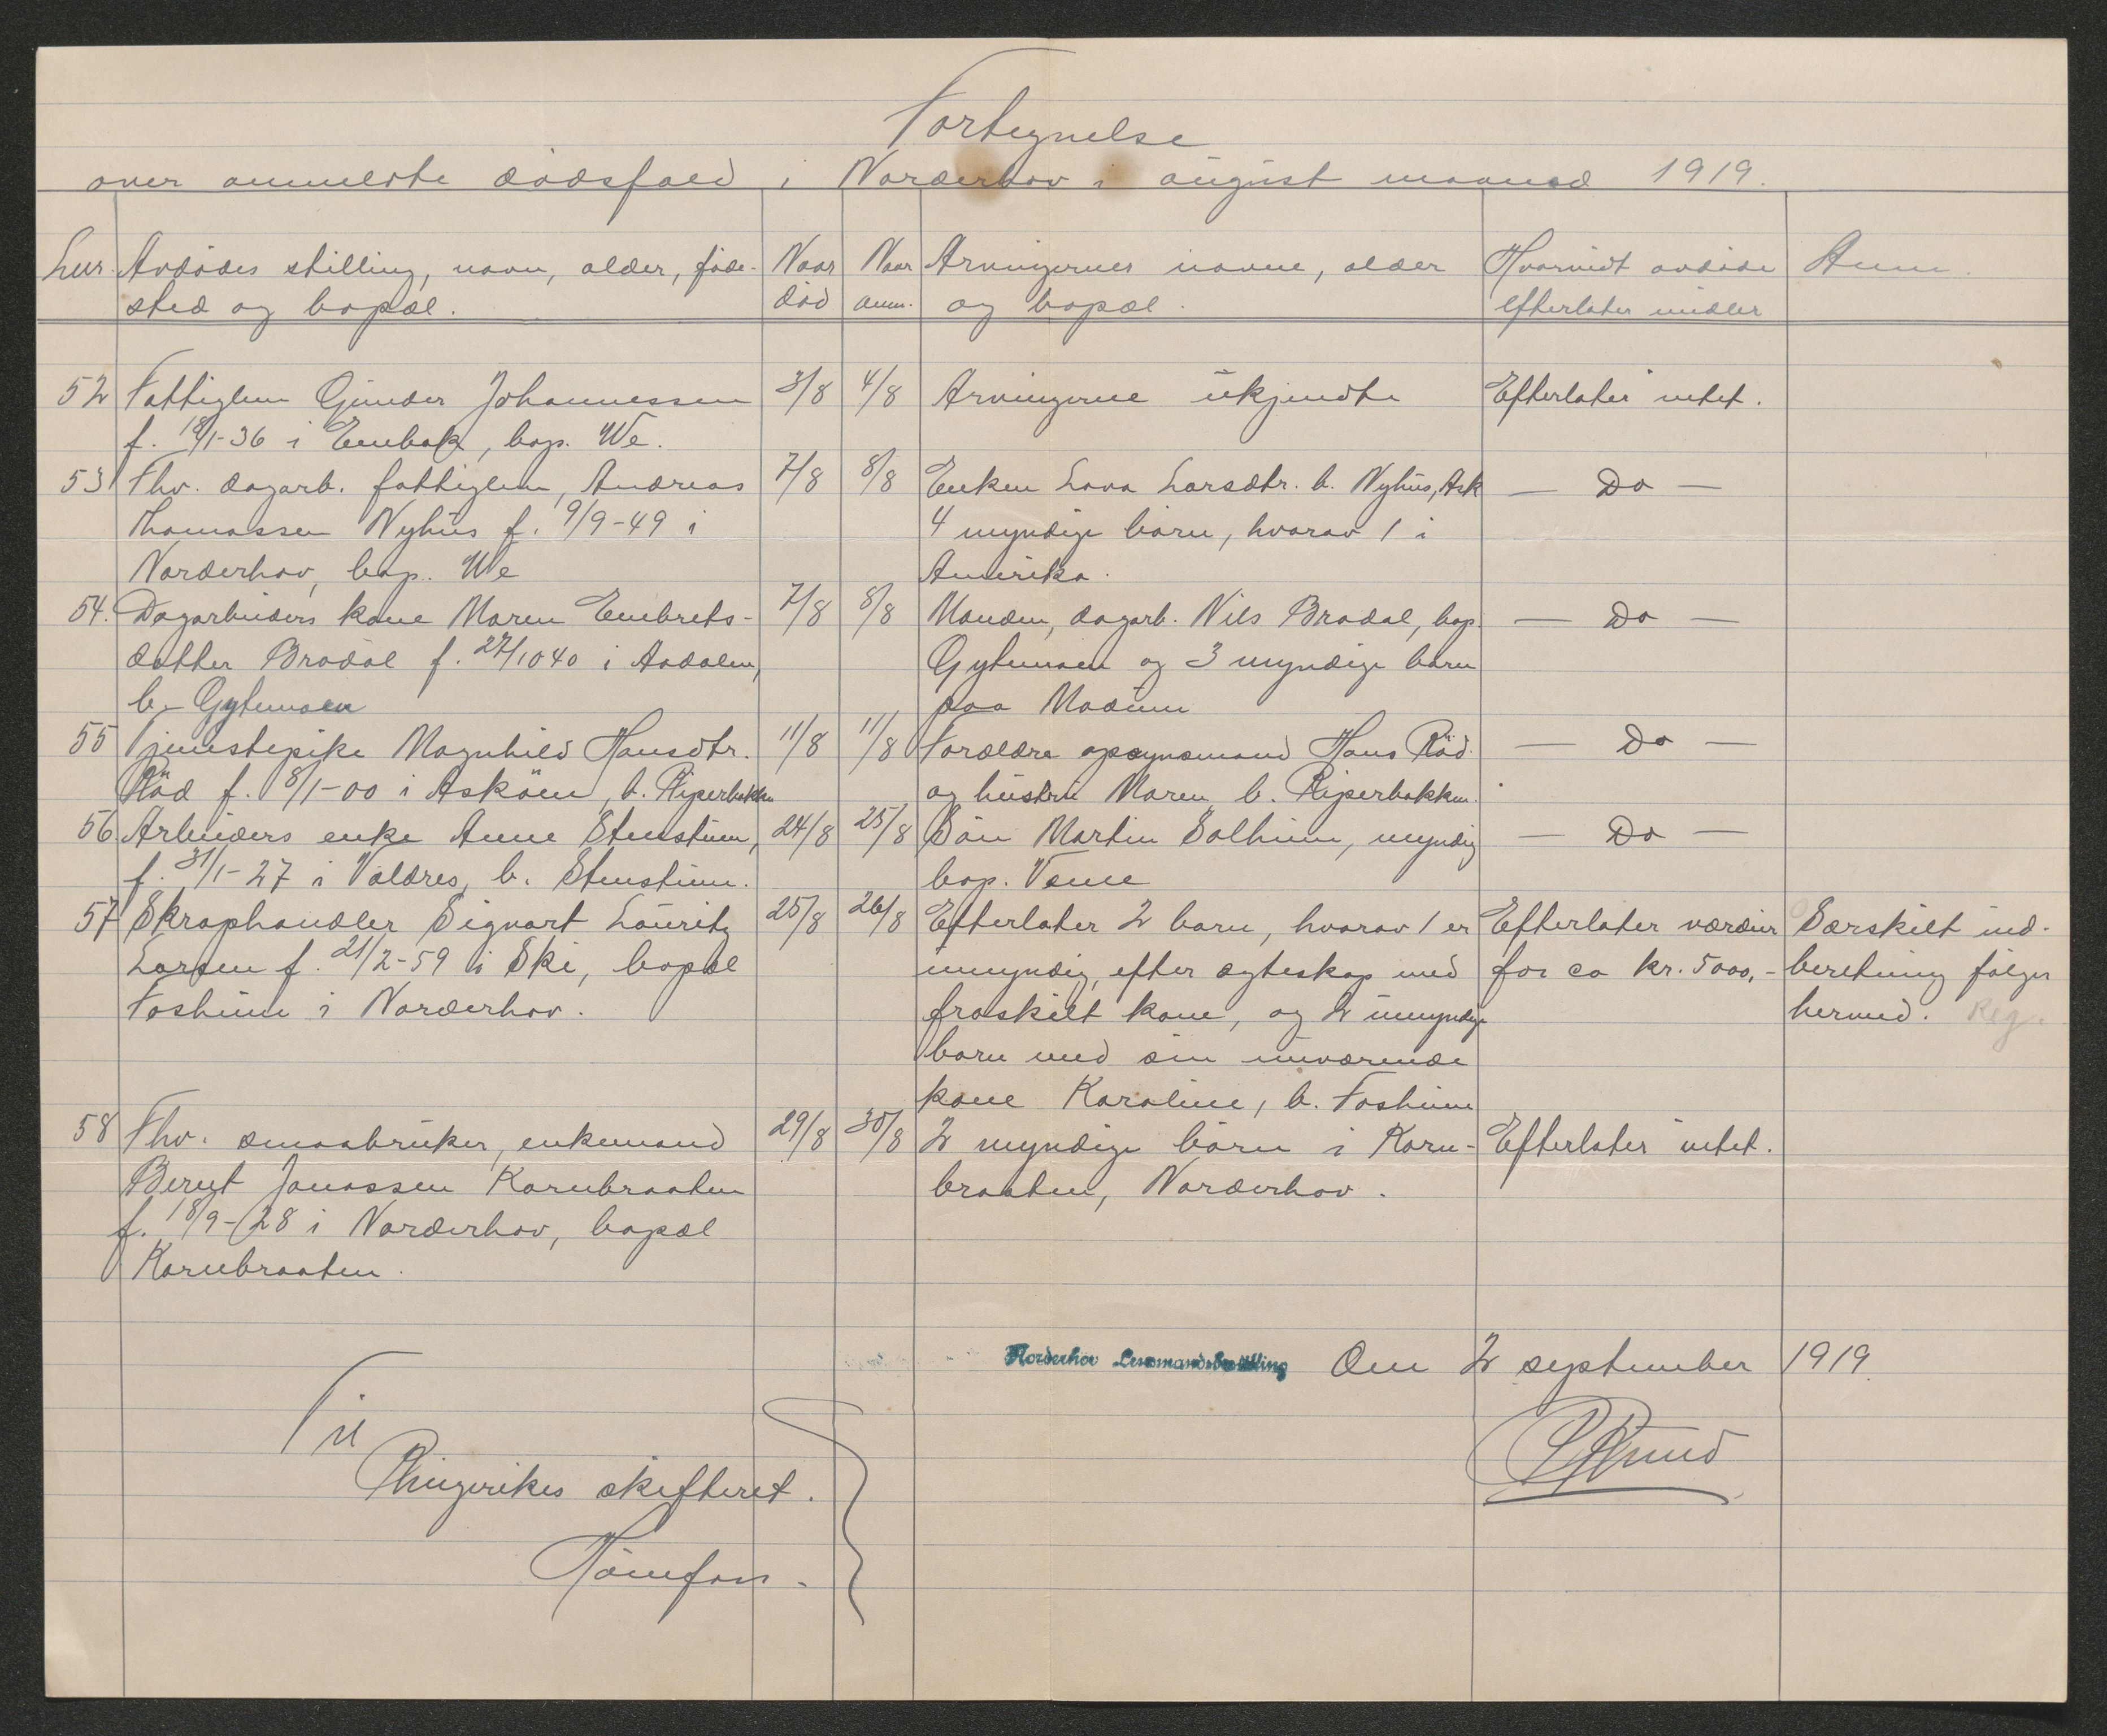 Fortegnelse
over anmeldte dødsfald i Norderhov i august maaned 1919.
Lnr. Avdødes stilling, navn, alder, føde- Naar Naar Arvingernes navne, alder Hvorvidt avdøde Anm.
sted og bopæl. død anm. og bopæl. efterlater midler
52 Fattiglem Gunder Johannessen 3/8 4/8 Arvingerne ukjendte Efterlater intet.
f. 18/1-36 i Enebak, bop. We.
53 Fhv. dagarb. fattiglem, Andreas 7/8 8/8 Enken Lava Larsdtr. b. Nyhus, Ask — Do —
Thomassen Nyhus f. 19/9-49 i 4 myndige børn, hvorav 1 i
Norderhov, bop. We Amerika.
54. Dagarbeiders kone Maren Embrets- 7/8 8/8 Manden, dagarb. Nils Bradal, bop. — Do —
datter Bradal f. 27/10 40 i Aadalen, Gytemoen og 3 myndige barn
b. Gytemoen paa Modum
55 Tjenestepike Magnhild Hansdtr. 11/8 11/8 Forældre opsynsmand Hans Rød. — Do —
Rød f. 8/1-00 i Askøen, b. Riperbakken og hustru Maren b. Riperbakken.
56 Arbeiders enke Anne Stenstuen, 24/8 25/8 Søn Martin Solheim, myndig — Do —
f. 31/1-27 i Valdres, b. Stenstuen. bop. Veme
57 Skraphandler Sigvart Lauritz 25/8 26/8 Efterlater 2 barn, hvorav 1 er Efterlater værdier Særskilt ind-
Larsen f. 21/2-59 i Ski, bopæl umyndig, efter egteskap med for ca kr. 5000,- beretning følger
Fosheim i Norderhov. fraskilt kone, og 2 umyndige hermed. Reg.
barn med sin nuværende
kone Karoline, b. Fosheim
58 Fhv. smaabruker, enkemand 29/8 30/8 2 myndige børn i Korn- Efterlater intet.
Bernt Jonassen Kornbraaten braaten, Norderhov.
f. 18/9-28 i Norderhov, bopæl
Kornbraaten.
Norderhov Lensmandsbestilling Den 2 september 1919.
Til
Ringerikes skifteret.
Hønefoss.